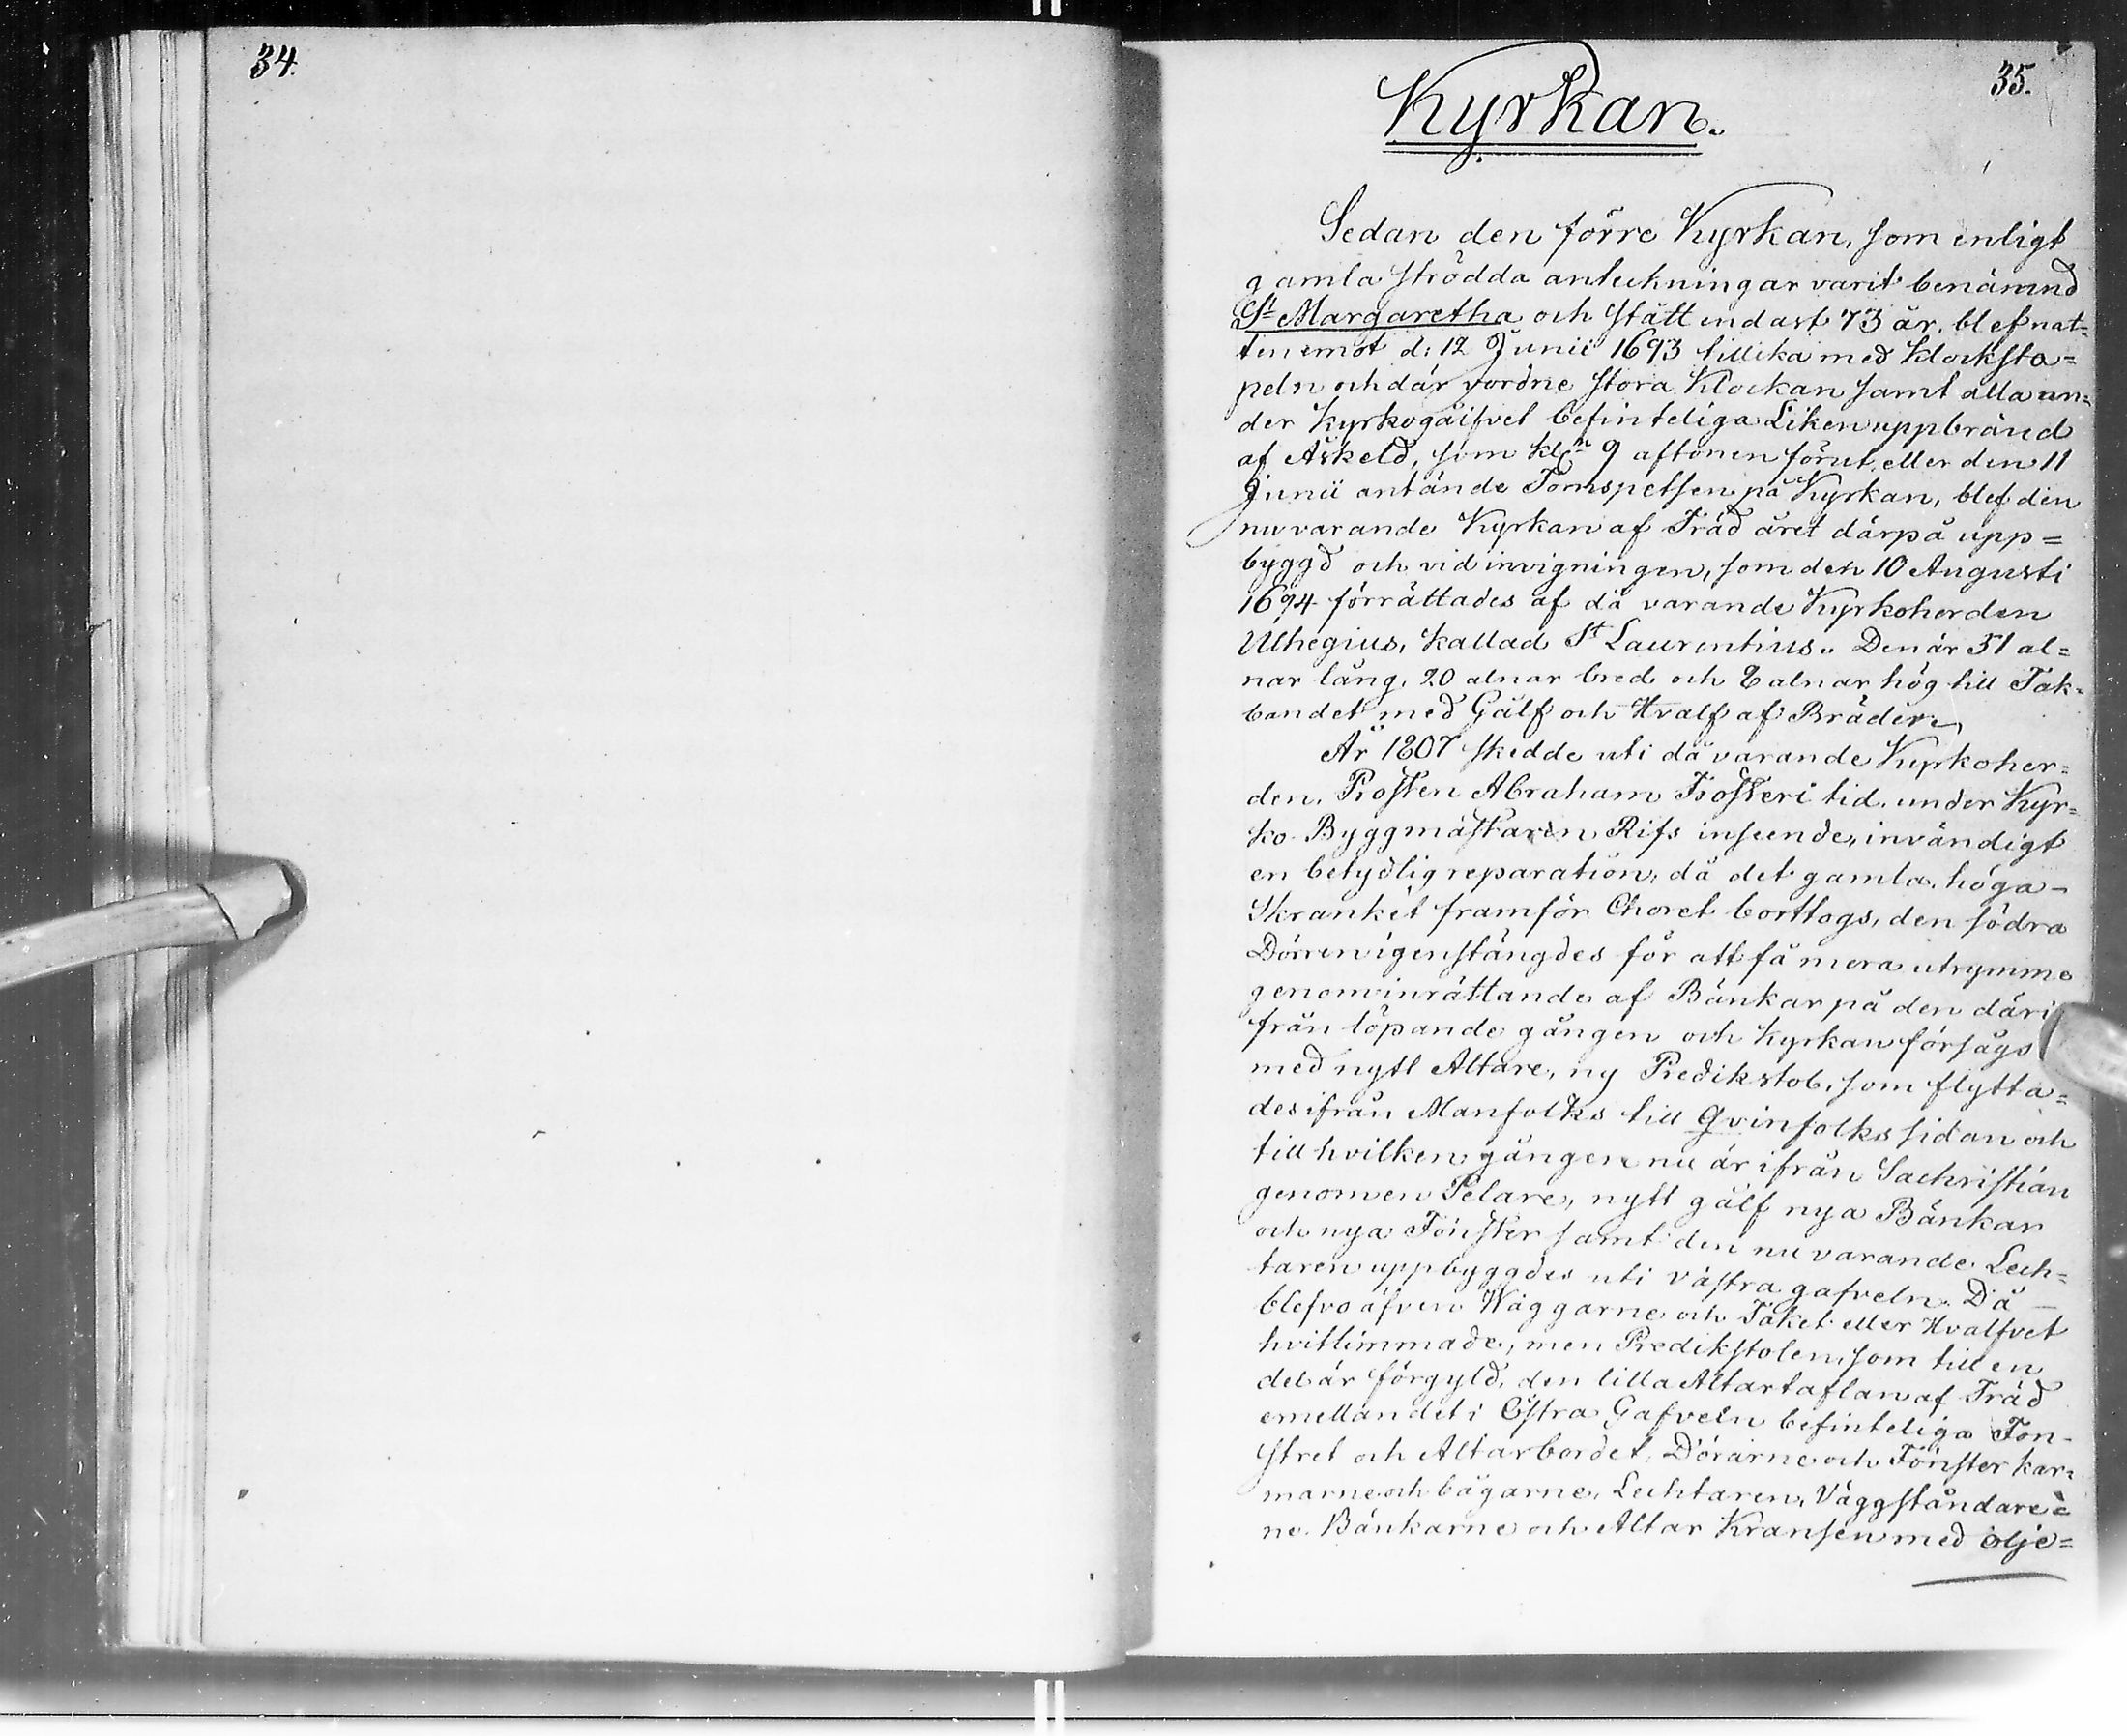 34.
35.
Kyrkan.
Sedan den förre Kyrkan, som enligt
gamla strödda anteckningar varit benämnd
St Margaretha och stått endast 73 år, blef nat=
ten emot d: 12 Junii 1693 tillika med klocksta=
peln och där vordne stora Klockan samt alla un=
der kyrkogålfvet befinteliga Liken uppbränd
af Åskeld, som kl. 9 aftonen förut eller den 11
Junii antände Tornspetsen på Kyrkan, blef den
nu varande Kyrkan af Träd året därpå upp=
byggd och vid invigningen, som den 10 Augusti
1694 förrättades af då varande Kyrkoherden
Ulhegius, kallad St Laurentius. Den är 31 al=
nar lång, 20 alnar bred och 8 alnar hög till Tak=
bandet med Gålf och Hvalf af Bräder.
År 1807 skedde uti då varande Kyrkoher=
den, Prosten Abraham Frosteri tid, under Kyr=
ko Byggmästaren Rifs inseende, invändigt
en betydlig reparation, då det gamla höga
Skranket framför Choret borttogs, den södra
Dörren igenstängdes för att få mera utrymme
genom inrättande af Bänkar på den däri
från löpande gången och Kyrkan försågs
med nytt Altare, ny Predikstol, som flytta=
des ifrån Manfolks till Qvinfolks sidan och
till hvilken gången nu är ifrån Sachristian
genom en Pelare, nytt gålf nya Bänkar
och nya Fönster samt den nu varande Lech=
taren uppbyggdes uti västra gafveln. Då
blefvo äfven Wäggarne och Taket eller Hvalfvet
hvitlimmade, men Predikstolen, som till en
del är förgyld, den lilla Altartaflan af Träd
emellan det i Östra Gafveln befinteliga Fön-
stret och Altarbordet, Dörarne och Fönster kar=
marne och bågarne, Lechtaren, Väggståndare=
ne. Bänkarne och Altar Kransen med olje=